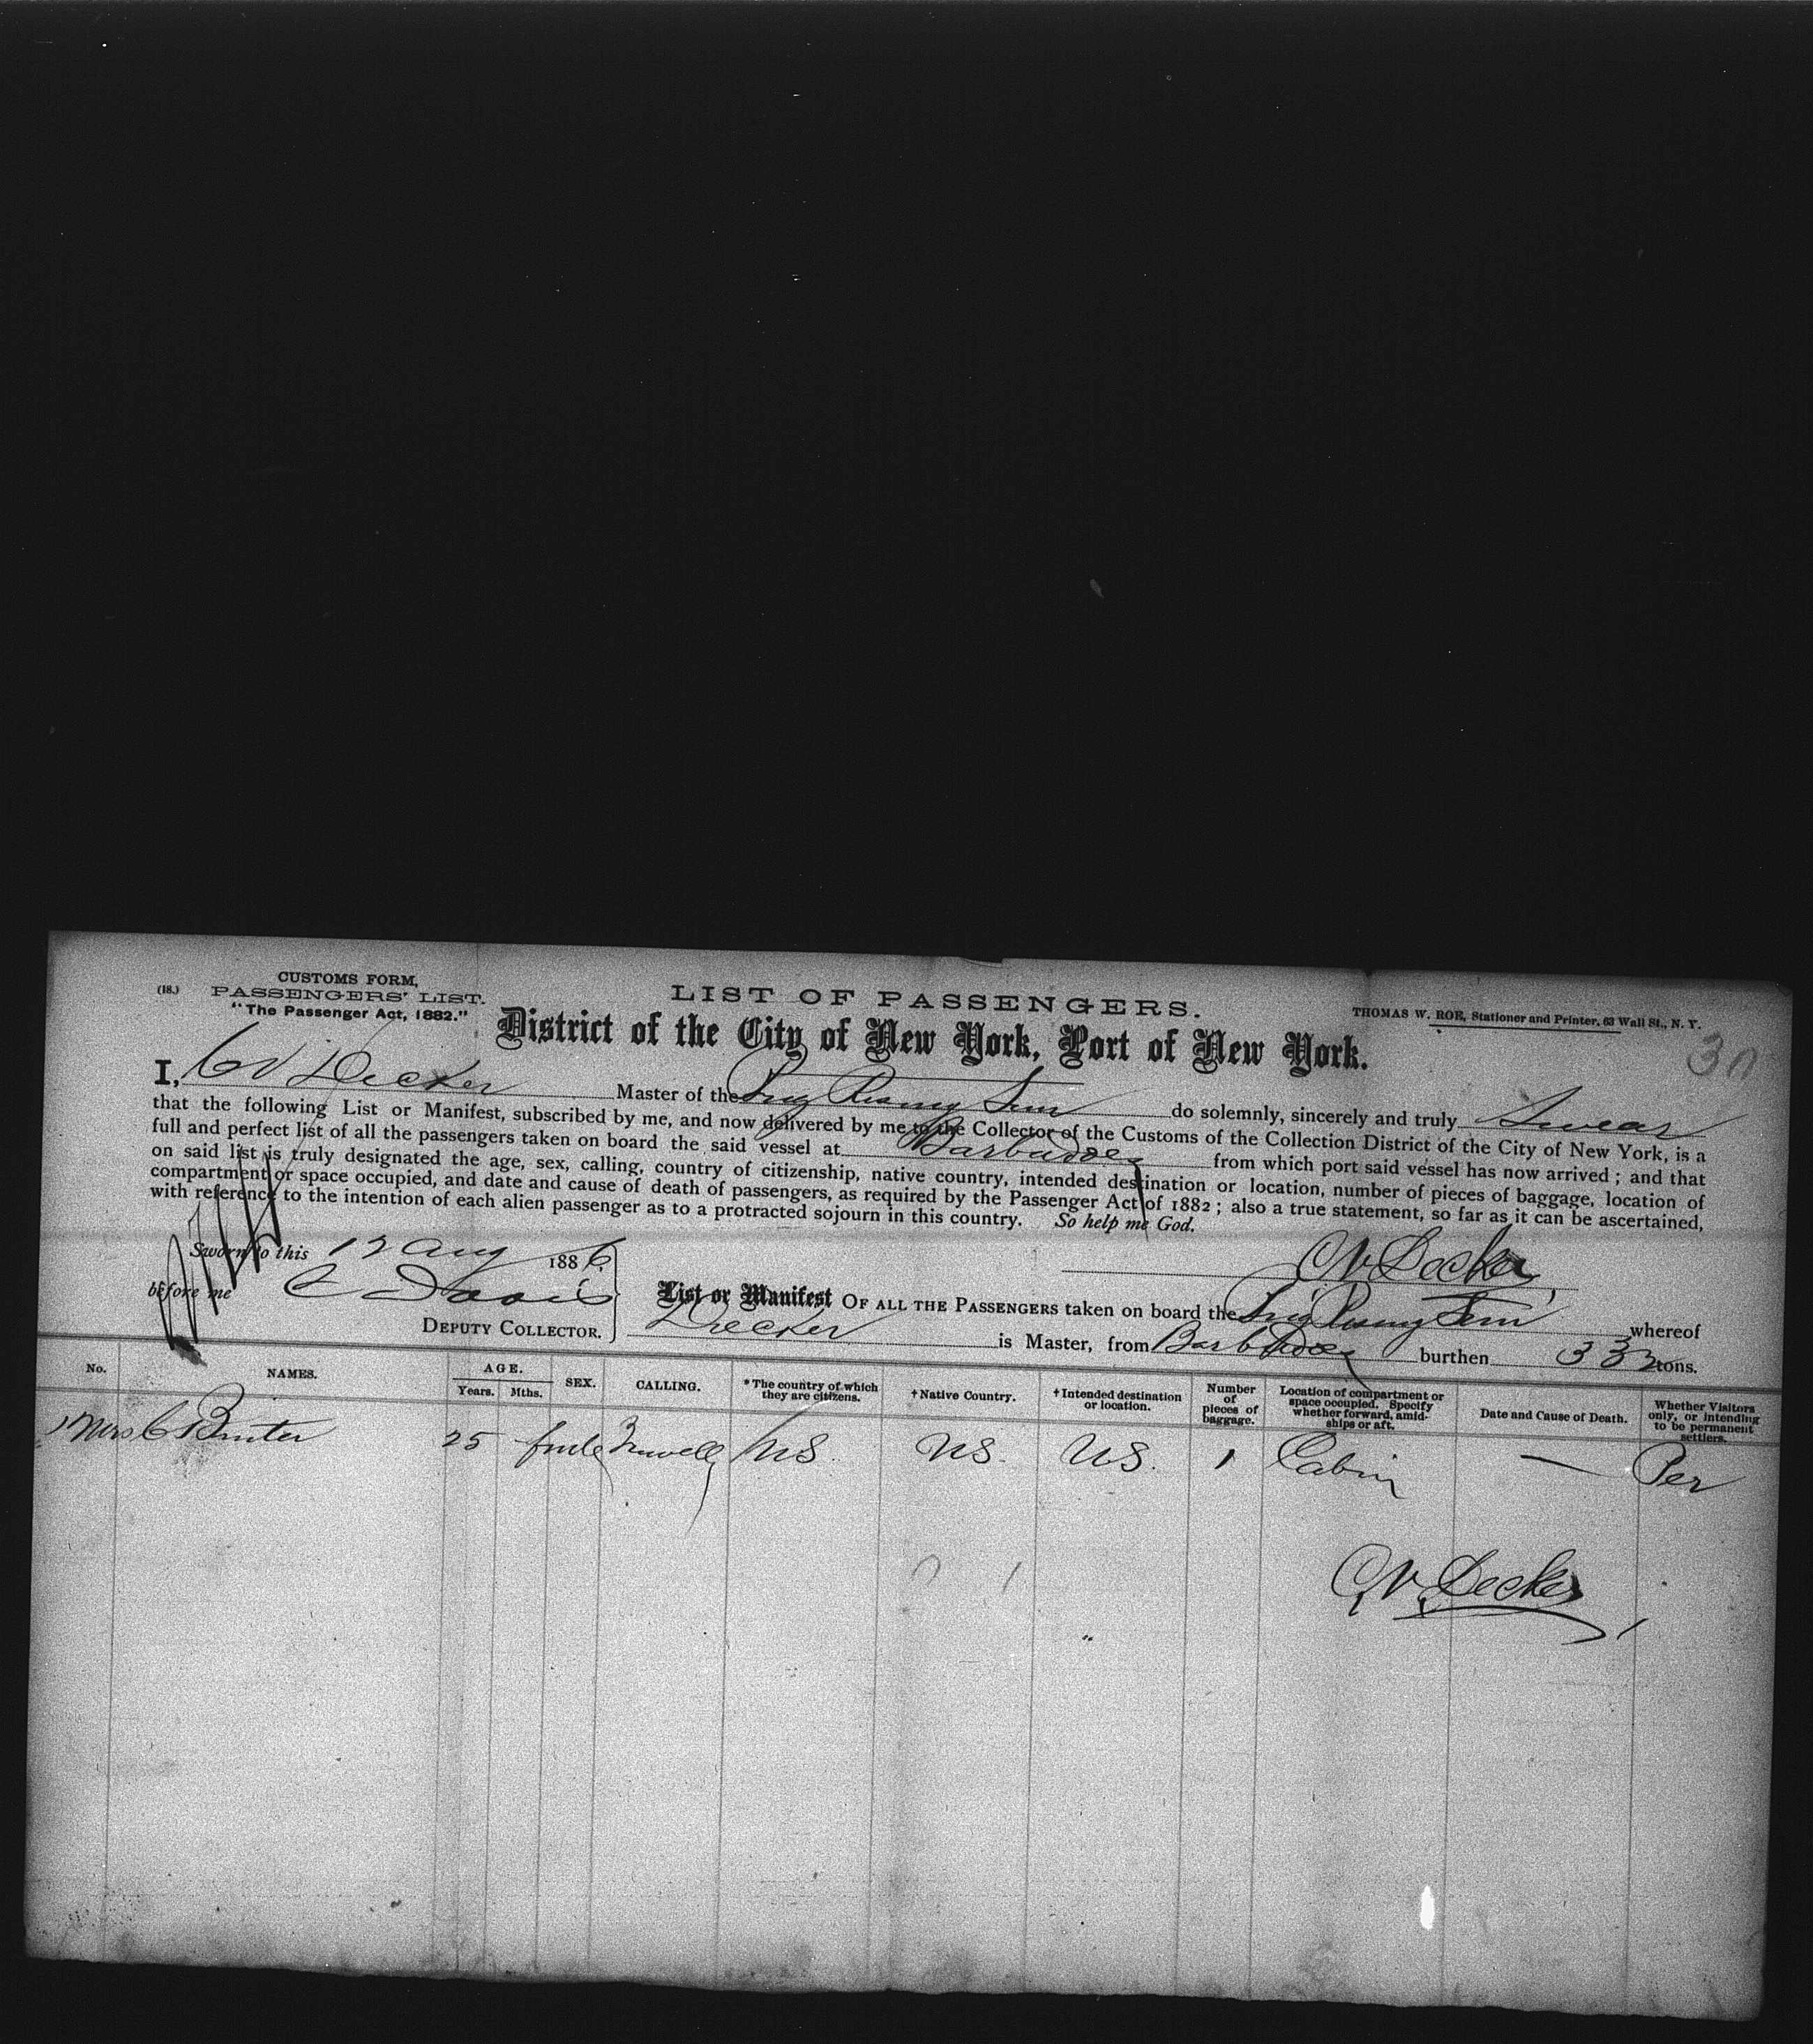 CUSTOMS FORM,
(18.) PASSENGERS' LIST.
"The Passenger Act, 1882."
LIST OF PASSENGERS.
THOMAS W. ROE, Stationer and Printer, 63 Wall St., N. Y.
District of the City of New York, Port of New York.
30
I, C V Decker Master of the Brig Rising Sun do solemnly, sincerely and truly Swear
that the following List or Manifest, subscribed by me, and now delivered by me to the Collector of the Customs of the Collection District of the City of New York, is a
full and perfect list of all the passengers taken on board the said vessel at Barbadoes from which port said vessel has now arrived; and that
on said list is truly designated the age, sex, calling, country of citizenship, native country, intended destination or location, number of pieces of baggage, location of
compartment or space occupied, and date and cause of death of passengers, as required by the Passenger Act of 1882; also a true statement, so far as it can be ascertained,
with reference to the intention of each alien passenger as to a protracted sojourn in this country. So help me God.
Sworn to this 12 Aug 1886
C V Decker
before me C Davis
DEPUTY COLLECTOR.
List or Manifest OF ALL THE PASSENGERS taken on board the Brig Rising Sun whereof
Decker is Master, from Barbadoes burthen 333 tons.
No. NAMES. AGE. Years. Mths. SEX. CALLING. *The country of which they are citizens. †Native Country. †Intended destination or location. Number of pieces of baggage. Location of compartment or space occupied. Specify whether forward, amidships or aft. Date and Cause of Death. Whether Visitors only, or intending to be permanent settlers.
1 Mrs C 25 US US. US. 1 Cabin — Per
C. V. Decker